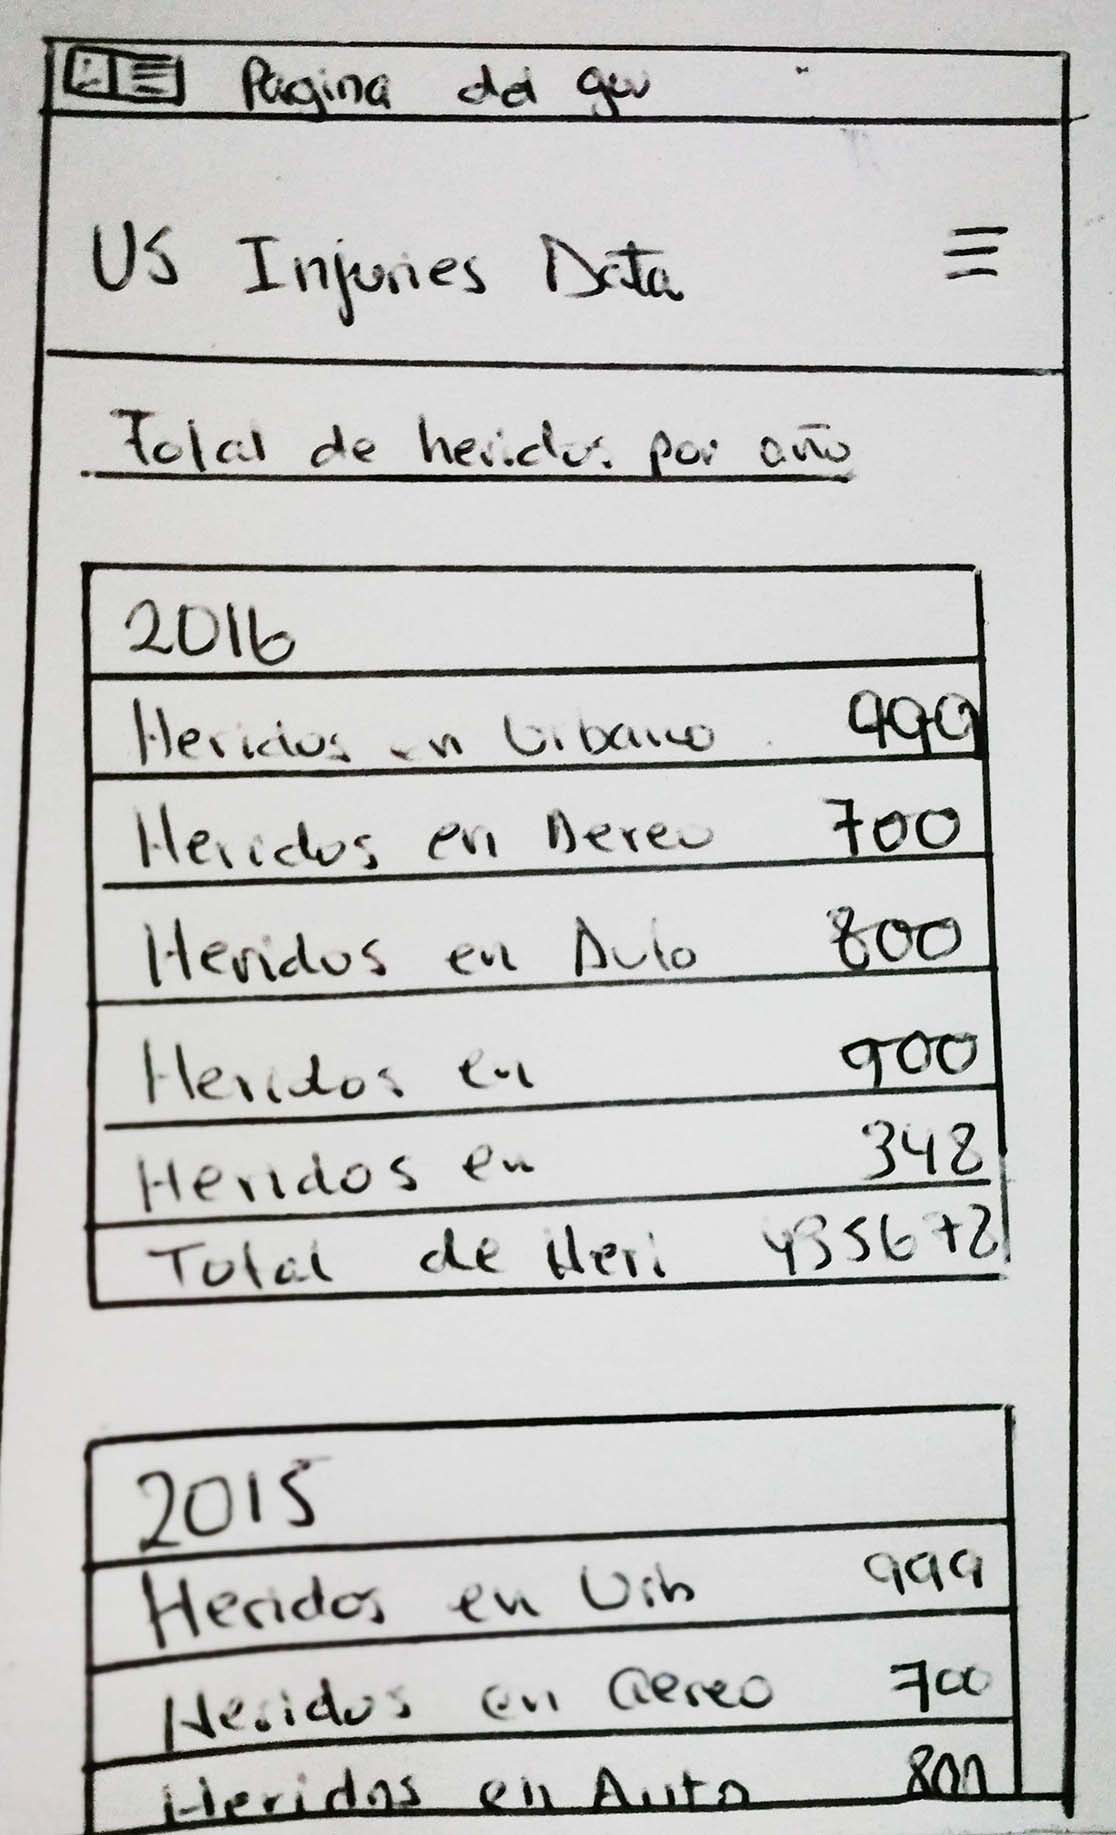 Pagina del gov
US Injuries Data
Total de heridos por año
2016
Heridos en Urbano 999
Heridos en Aereo 700
Heridos en Auto 800
Heridos en 900
Heridos en 348
Total de Heri 435672
2015
Heridos en Urb 999
Heridos en aereo 700
Heridos en Auto 800